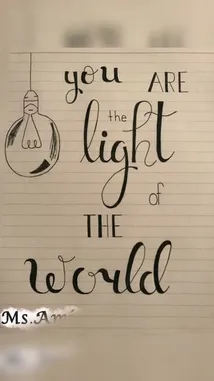 you ARE
the
light
of
THE
World
Ms.Am